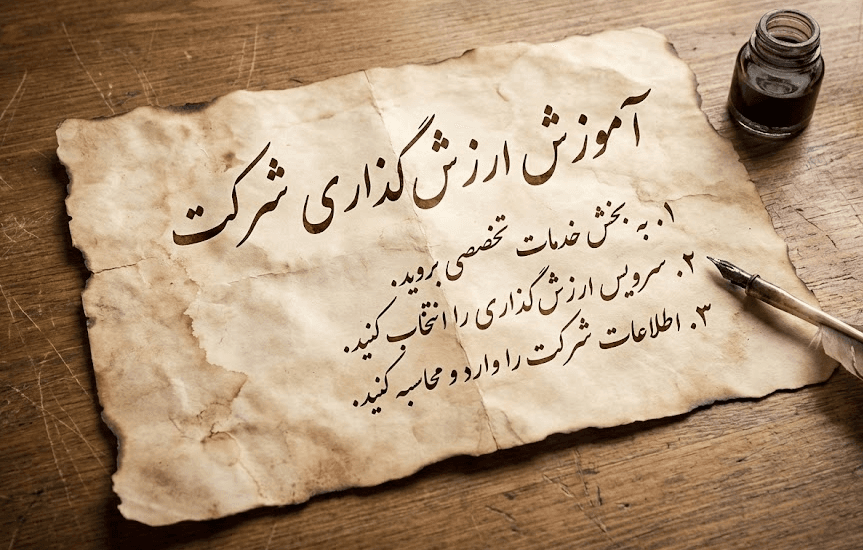 آموزش ارزش‌گذاری شرکت
۱. به بخش خدمات تخصصی بروید.
۲. سرویس ارزش‌گذاری را انتخاب کنید.
۳. اطلاعات شرکت را وارد و محاسبه کنید.